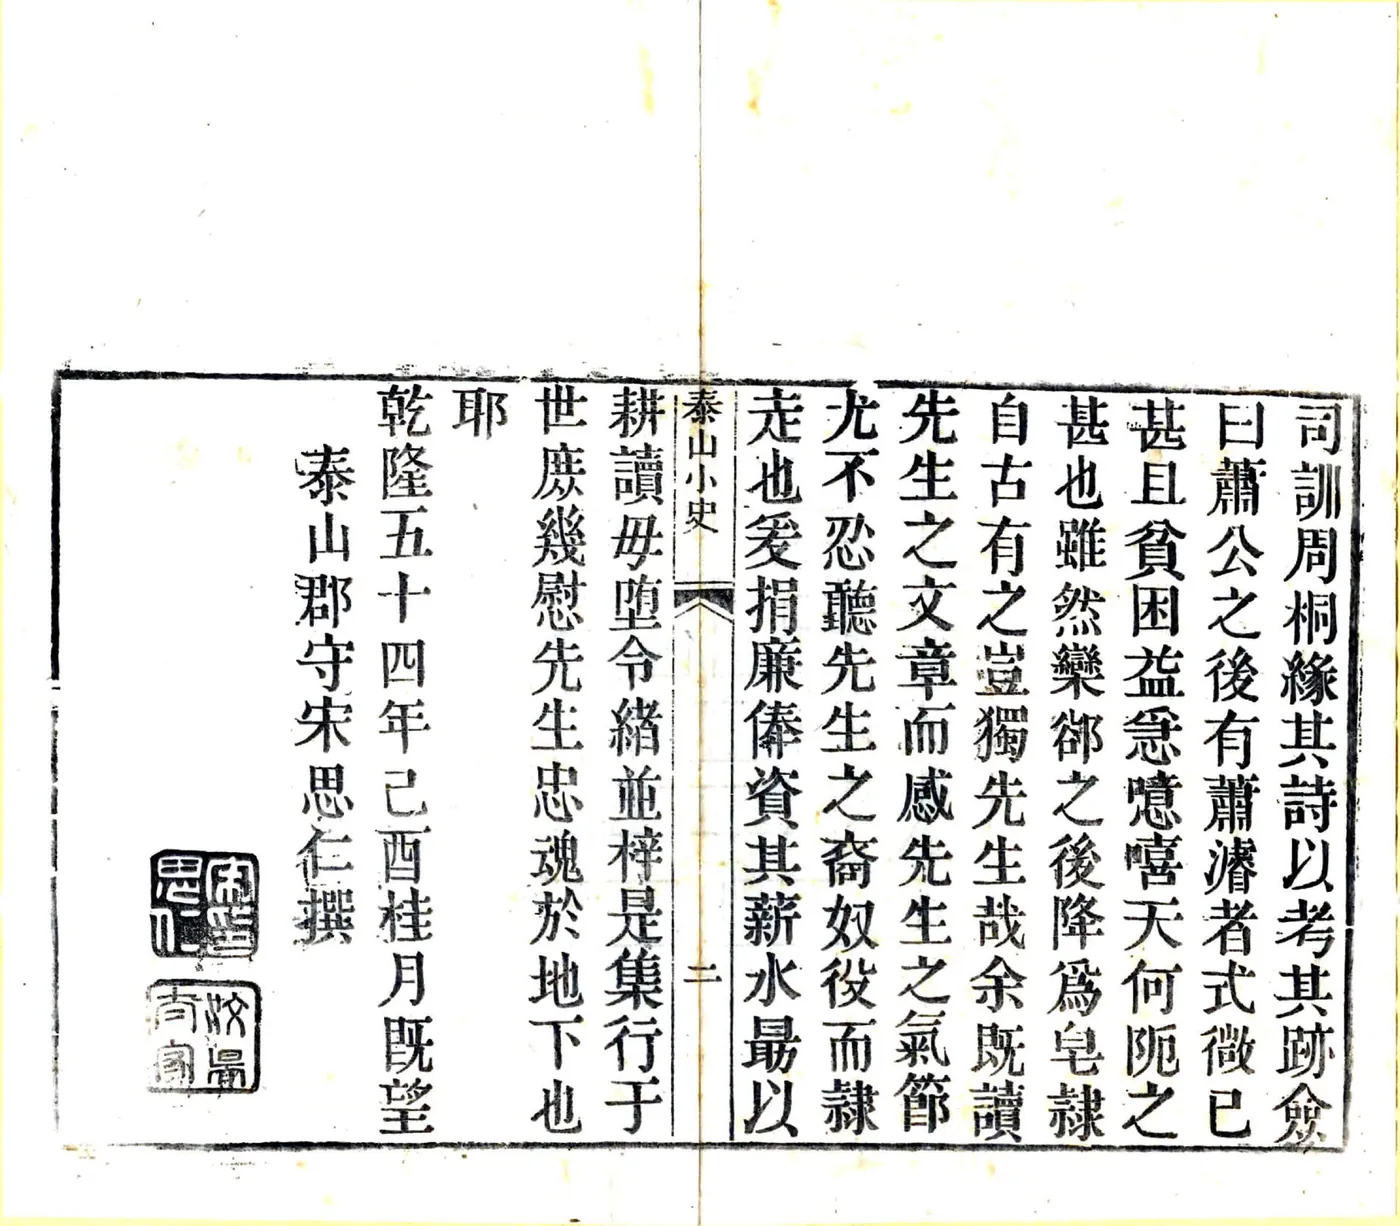 司訓周桐緣其詩以考其跡僉
曰蕭公之後有蕭濬者式微已
甚且貧困益急噫嘻天何阨之
甚也雖然欒郤之後降爲皂隸
自古有之豈獨先生哉余既讀
先生之文章而感先生之氣節
尤不忍聽先生之裔奴役而隸
走也爰捐廉俸資其薪水最以
泰山小史
二
耕讀毋墮令緒並梓是集行于
世庶幾慰先生忠魂於地下也
耶
乾隆五十四年己酉桂月既望
泰山郡守宋思仁撰
宋印思仁